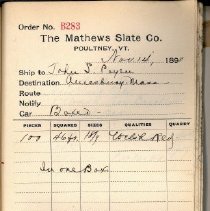 Order No. B283
The Mathews Slate Co.
POULTNEY, VT.
Nov. 14, 189
Ship to John S. Poyen
Destination Amesbury Mass
Route
Notify
Car Boxed
PIECES SQUARES SIZES QUALITIES QUARRY
100 Welsh Red
In one Box